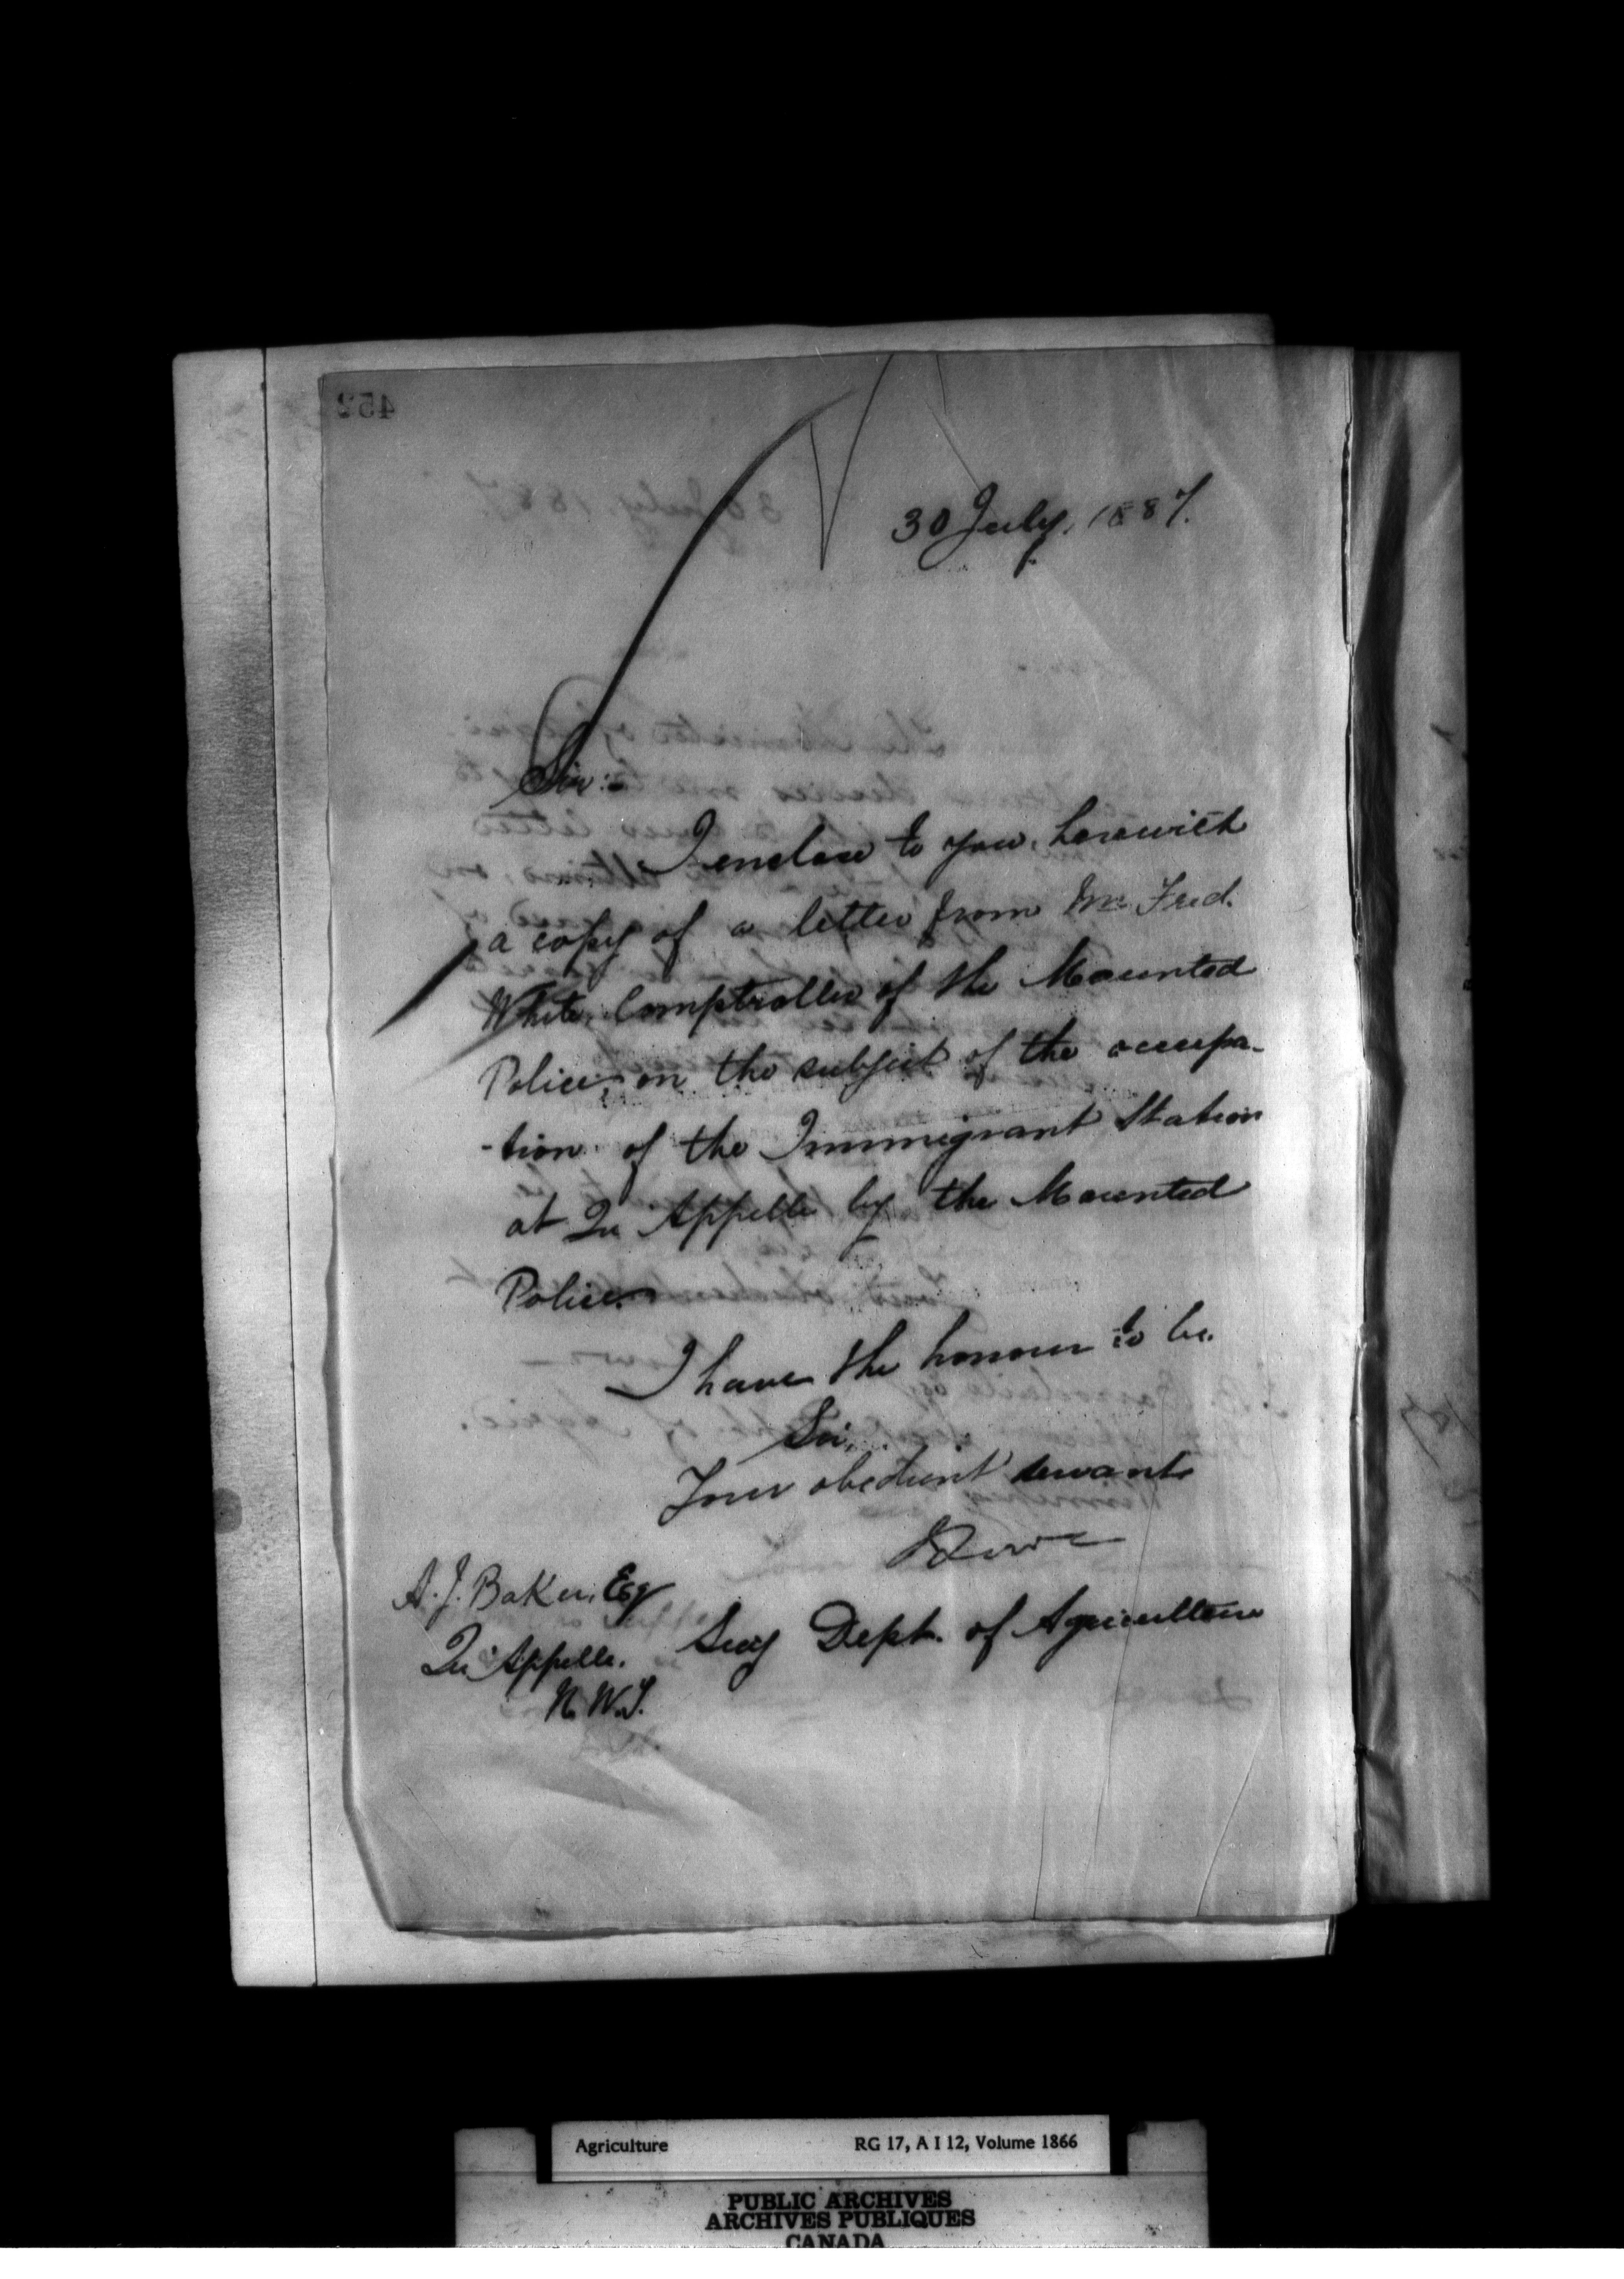 452
30 July, 1887.
Sir:-
I enclose to you, herewith
a copy of a letter from Mr. Fred.
White, Comptroller of the Mounted
Police, on the subject of the occupa-
-tion of the Immigrant Station
at Qu'Appelle by the Mounted
Police.
I have the honour to be.
Sir,
Your obedient servant
A. J. Baker, Esq
Secy Dept. of Agriculture
Qu'Appelle.
N. W. T.
Agriculture RG 17, A I 12, Volume 1866
PUBLIC ARCHIVES
ARCHIVES PUBLIQUES
CANADA